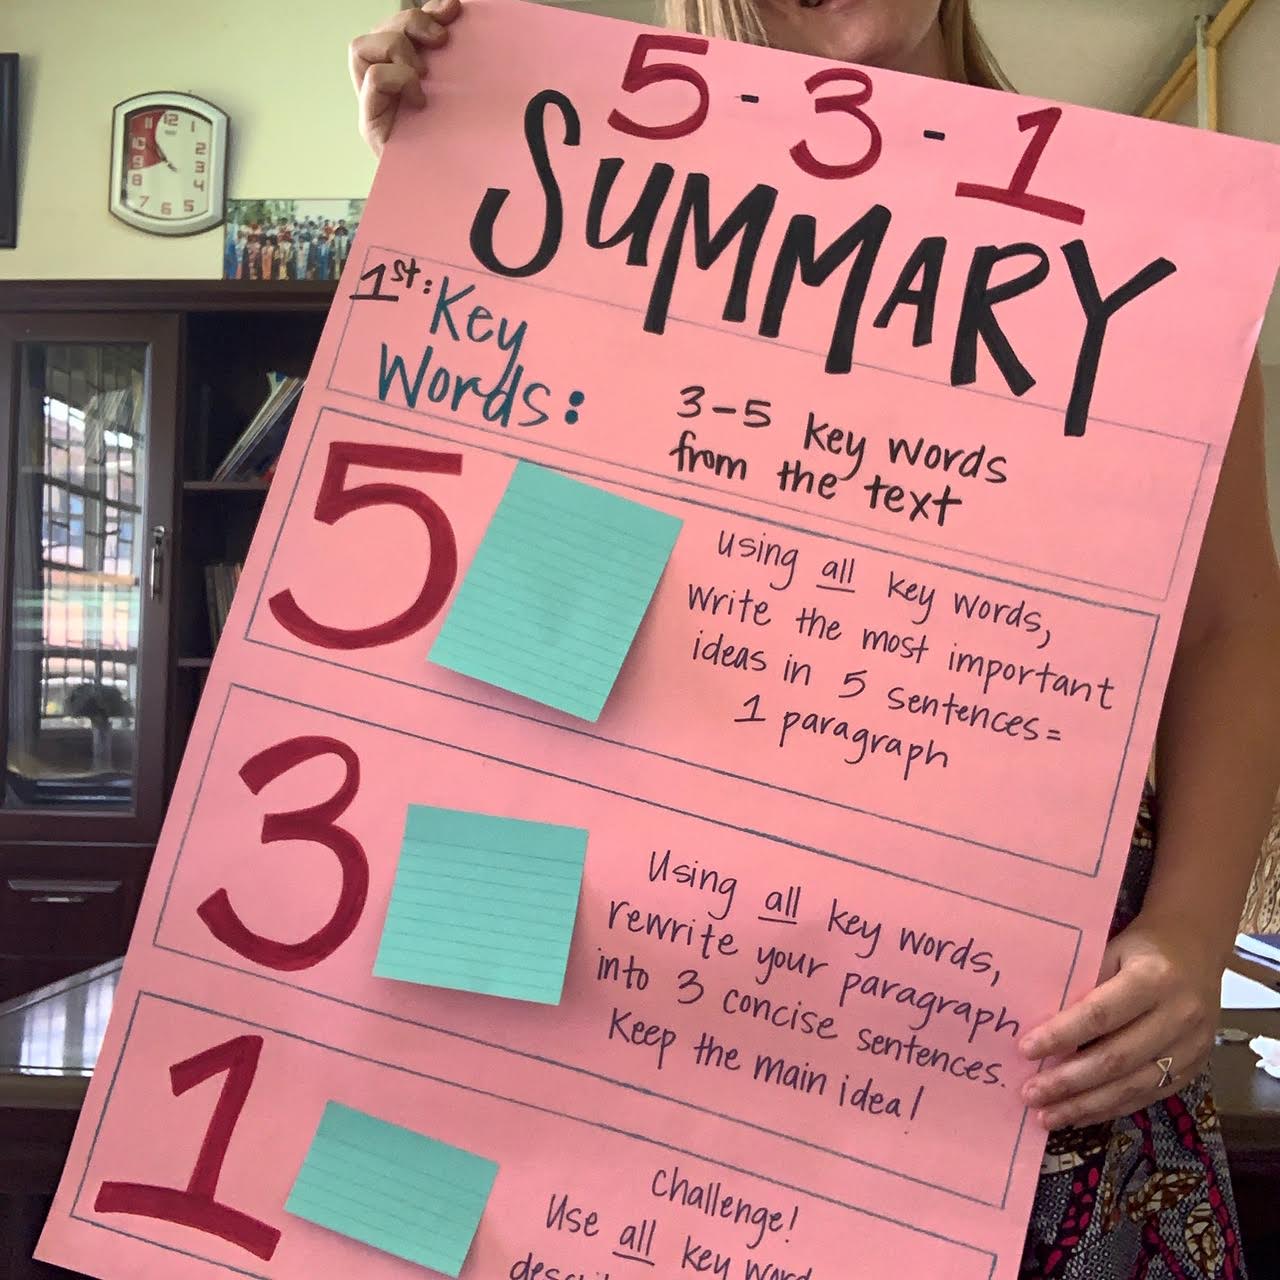 5-3-1
SUMMARY
1st: Key
Words:
3-5 key words
from the text
5
Using all key words,
write the most important
ideas in 5 sentences=
1 paragraph
3
Using all key words,
rewrite your paragraph
into 3 concise sentences.
Keep the main idea!
1
Challenge!
Use all key
12
1
2
3
4
5
6
7
8
9
10
11